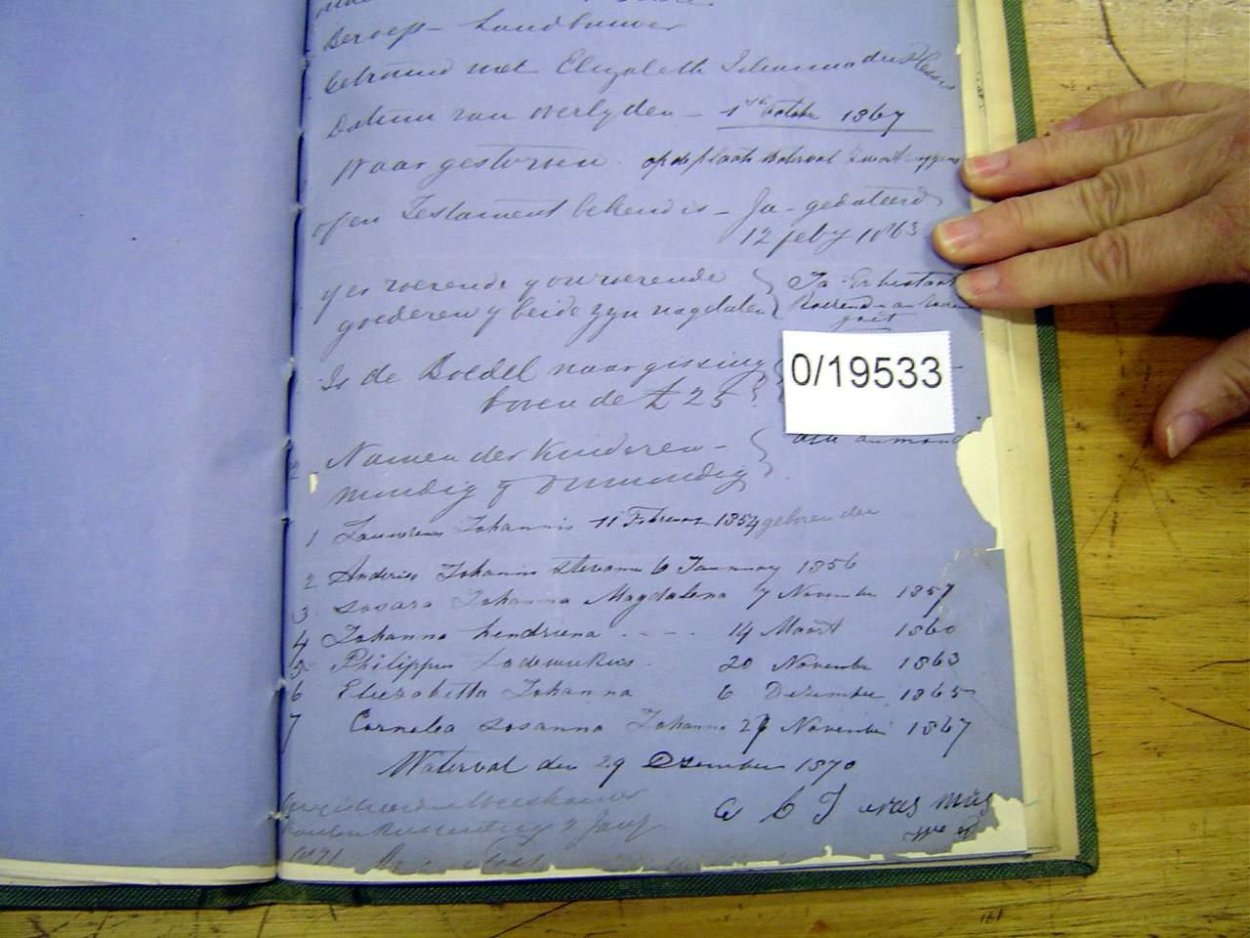 Beroep – Landbouwer
Getrouwd met Elizabeth Johanna du Plessis
Datum van overlyden – 1ste October 1867
Waar gestorven op de plaats Waterval
of een Testament bekend is – Ja – gedateerd
12 feby 1863
of er roerende of onroerende
goederen of beide zyn nagelaten
Ja Er bestaat
goet
Is de Boedel naar gissing
boven de £ 25 ?
0/19533
Namen der Kinderen –
mondig of onmondig
1 Lourens Johannis 11 Februarie 1854 geboren den
2 Andries Johannis Stevanus 6 January 1856
3 Sosara Johanna Magdalena 7 November 1857
4 Johanna hendriena - - - - 14 Maart 1860
5 Philippus Lodewikus 20 November 1863
6 Elizabetta Johanna 6 Dezember 1865
7 Cornelea Sosanna Johanna 27 November 1867
Waterval den 29 Dezember 1870
E C J erasmus